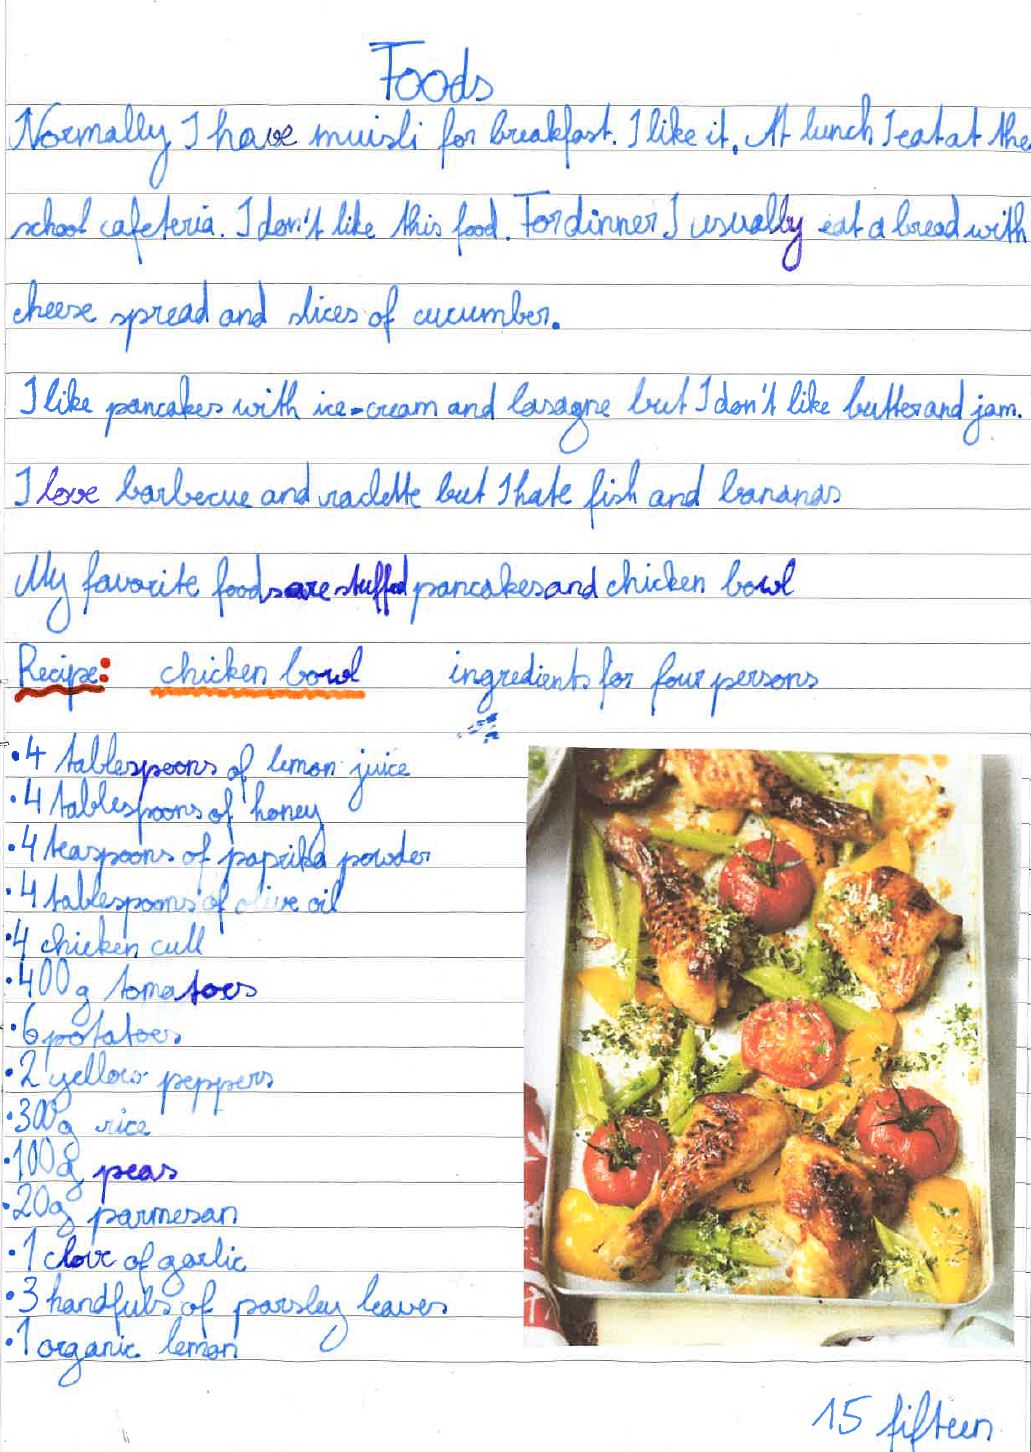 Foods
Normally I have muisli for breakfast. I like it. At lunch I eat at the
school cafeteria. I don't like this food. For dinner I usually eat a bread with
cheese spread and slices of cucumber.
I like pancakes with ice-cream and lasagne but I don't like butter and jam.
I love barbecue and raclette but I hate fish and bananas
My favorite foods are stuffed pancakes and chicken bowl
Recipe: chicken bowl ingredients for four persons
• 4 tablespoons of lemon juice
• 4 tablespoons of honey
• 4 teaspoons of paprika powder
• 4 tablespoons of olive oil
• 4 chicken cull
• 400g tomatoes
• 6 potatoes
• 2 yellow peppers
• 300g rice
• 100g peas
• 20g parmesan
• 1 clove of garlic
• 3 handfuls of parsley leaves
• 1 organic lemon
15 fifteen